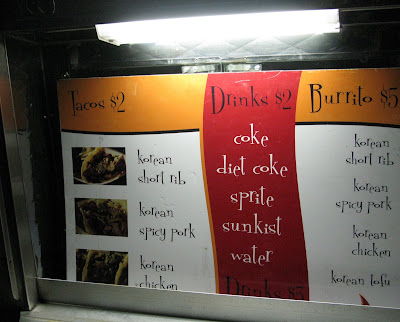 Tacos $2
korean
short rib
korean
spicy pork
korean
chicken
Drinks $2
coke
diet coke
sprite
sunkist
water
Drinks $3
Burrito $5
korean
short rib
korean
spicy pork
korean
chicken
korean tofu